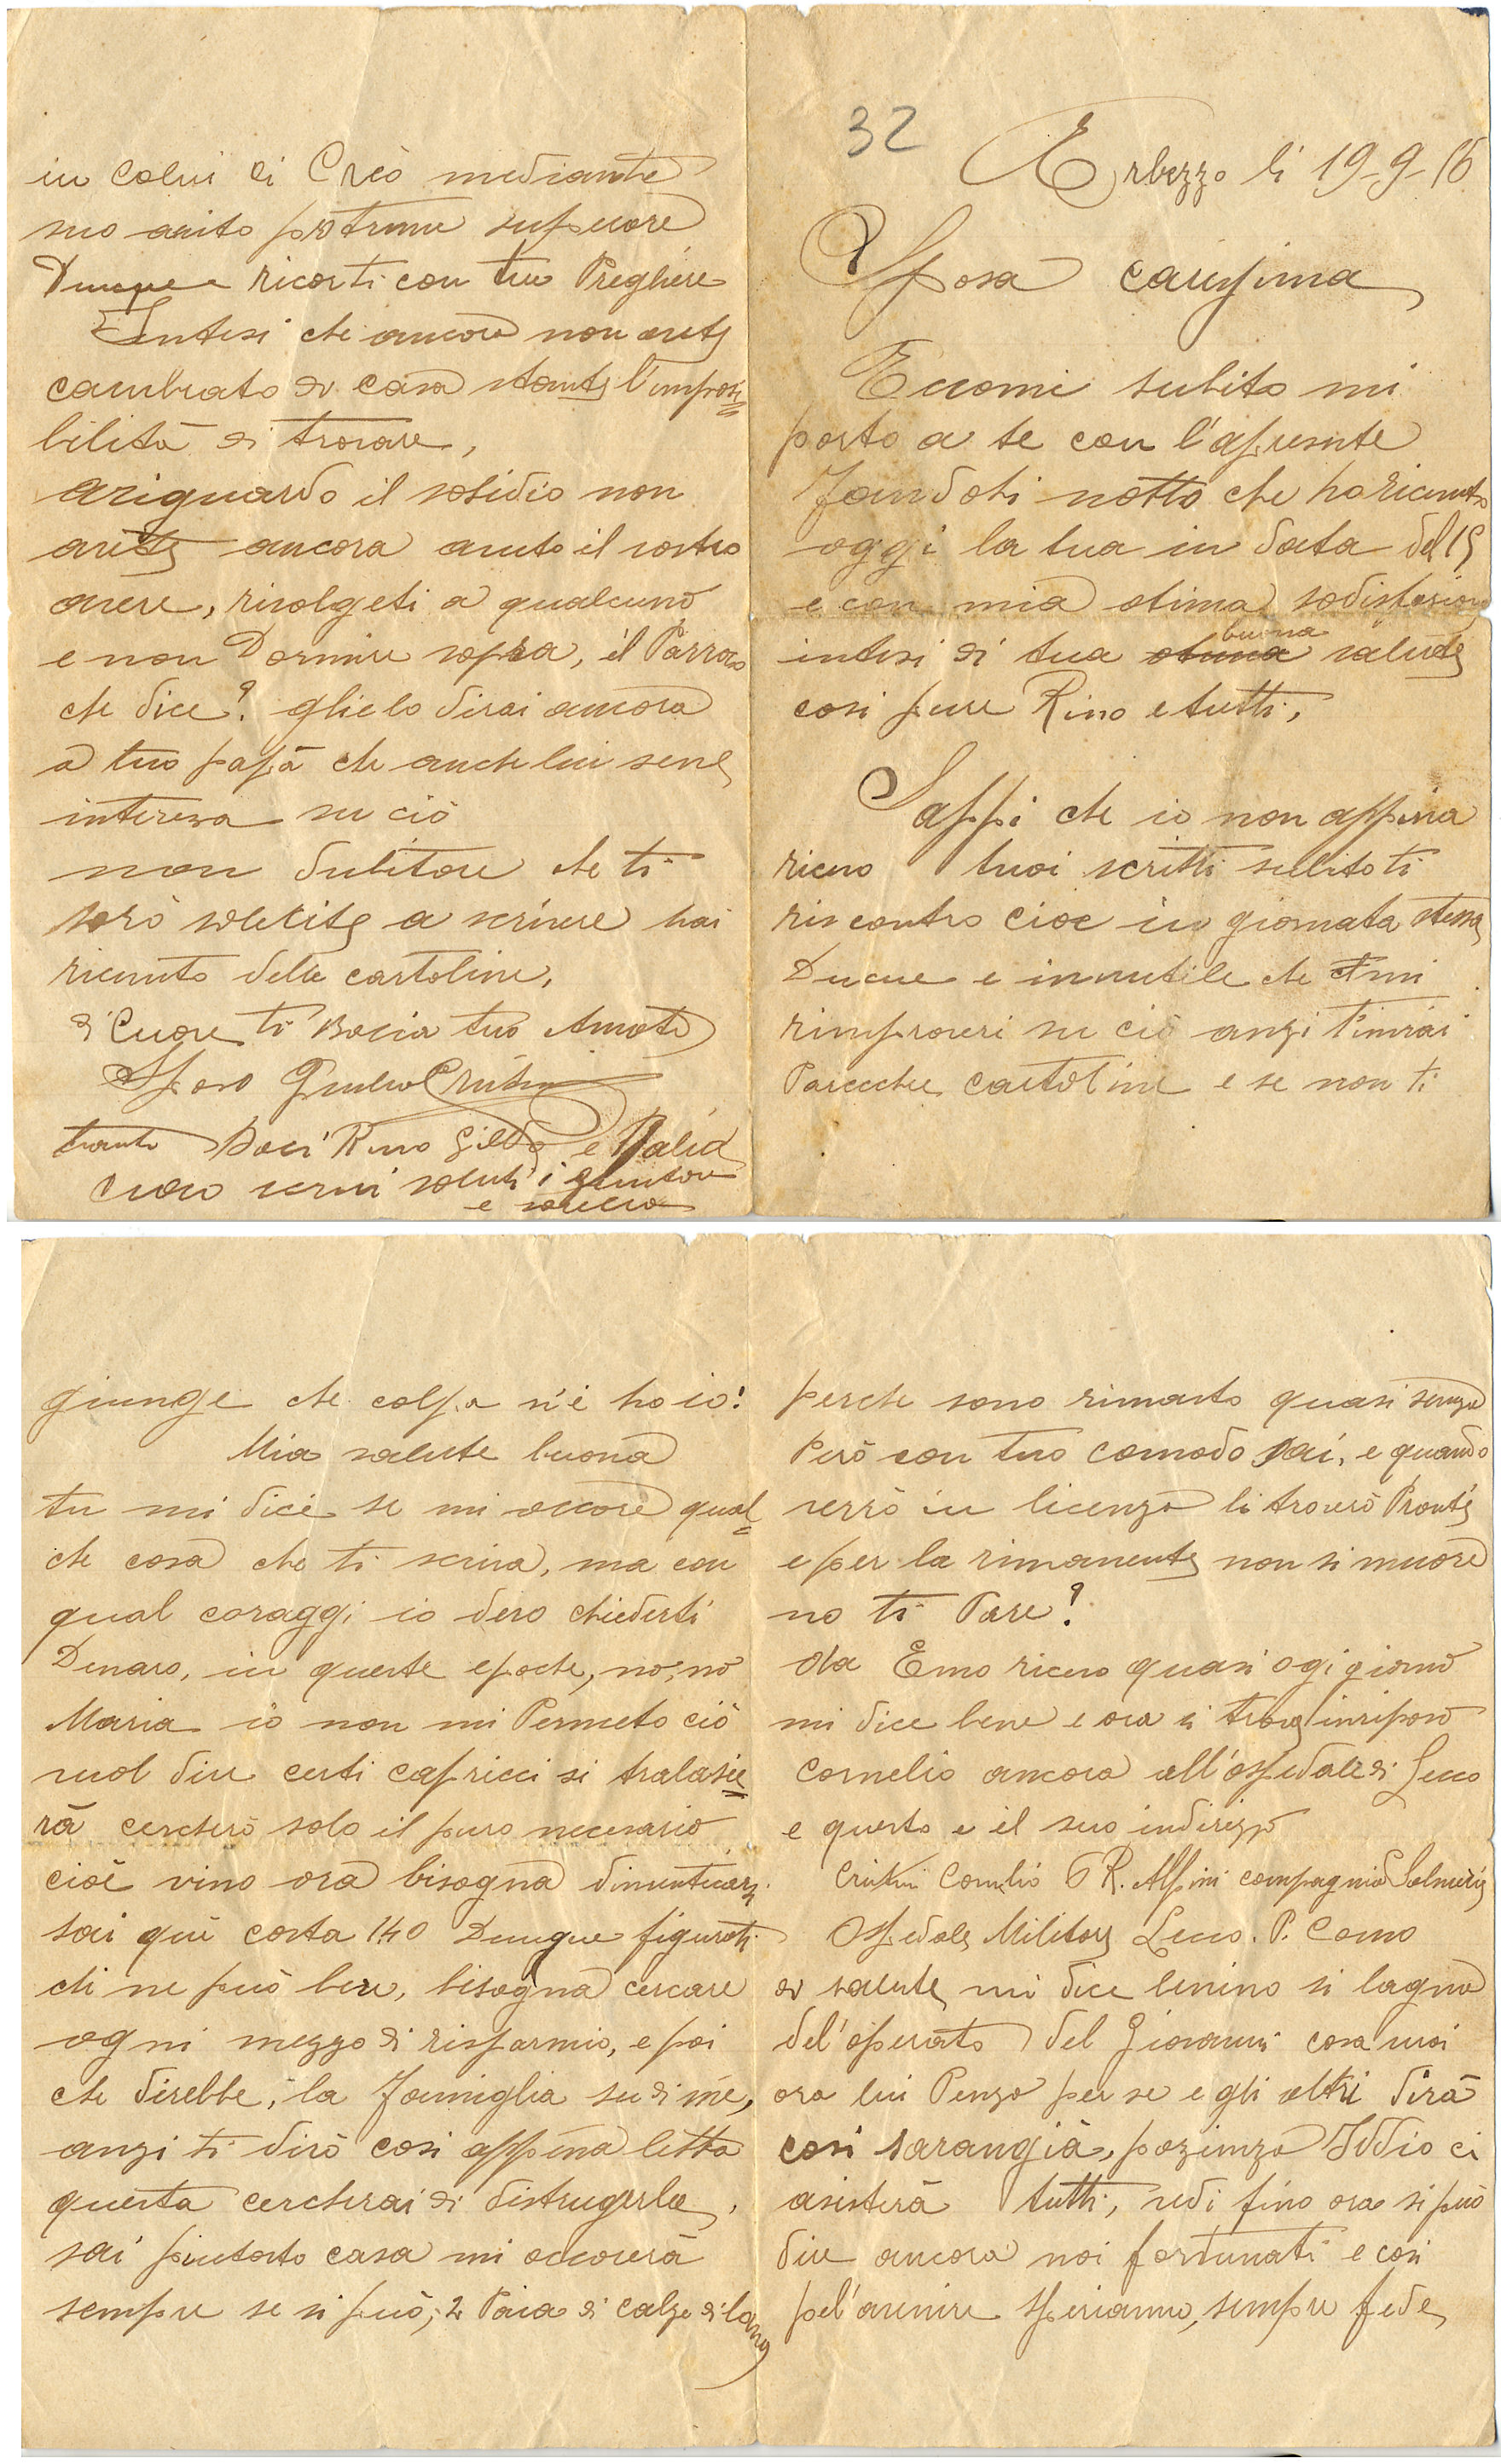 32
Erbezzo li 19-9-16
Sposa carissima
Eccomi subito mi
porto a te con l'apresente
Fandoti notto che ho ricevuto
oggi la tua in data del 15
e con mia stima sodisfasione
intesi di tua stima buona salute
così pure Rino e tutti,
Sappi che io non appena
ricevo i tuoi scritti subito ti
riscontro cioe in giornata stessa
Ducue e innutile che tu mi
rimproveri su ciò anzi t'inviai
Parecchie cartoline e se non ti
giunge che colpa n'é ho io!
Mia salute buona
tu mi dice se mi occore qual=
che cosa che ti scriva, ma con
qual coraggi io devo chiederti
Denaro, in queste epoche, no, no
Maria io non mi Permeto ciò
vuol dire certi capricci si tralasie=
rà cercherò solo il puro necesario
cioè vino ora bisogna dimenticarsi
sai quì costa 140 Dunque figurati
chi ne può bere, bisogna cercare
ogni mezzo di risparmio, e poi
che direbbe, la Famiglia su di me,
anzi ti dirò così appena letta
questa cercherai di distrugerla,
sai piutosto casa mi occorerà
sempre se si può; 2 Paia di calze di lana
perche sono rimasto quasi senza
Però con tuo comodo sai, e quando
verrò in licenza li troverò Pronti
e per la rimanente non si muore
no ti Pare?
da Emo ricevo quasi ogi giorno
mi dice bene e ora si trova inriposo
Cornelio ancora all'ospedale di Lecco
e questo e il suo indirizzo
Cornelio 6 R. Alpini compagnia Salmerie
Ospedale Militare Lecco. P. Como
di salute mi dice benino si lagna
del'operato del Giovanni cosa vuoi
ora lui Penza per se e gli altri dirà
così sarangià, pazienza Iddio ci
asisterà tutti, vedi fino ora si può
dire ancora noi fortunati e così
pel'avenire speriamo, sempre fede
in colui ci Creò mediante
suo aiuto potremo superare
Dunque ricorti con tue Preghiere
Intesi che ancora non avete
cambiato di casa stante l'imposi=
bilità di trovare,
ariguardo il sosidio non
avete ancora avuto il vostro
avere, rivolgeti a qualcuno
e non Dormire sopra, il Parroco
che dice? glielo dirai ancora
a tuo papà che anche lui sene
interesa su ciò
non dubitare che ti
sarò solecito a scrivere hai
ricevuto delle cartoline,
di Cuore ti Bacia tuo Amato
Sposo Giulio
tanti Baci Rino Gilda e
scrivi saluti i genitori
e sorella